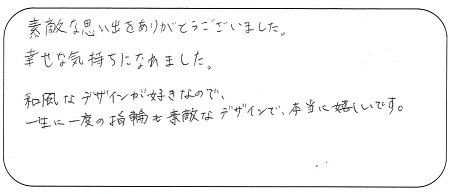 素敵な思い出をありがとうございました。
幸せな気持ちになれました。
和風なデザインが好きなので、
一生に一度の指輪も素敵なデザインで、本当に嬉しいです。